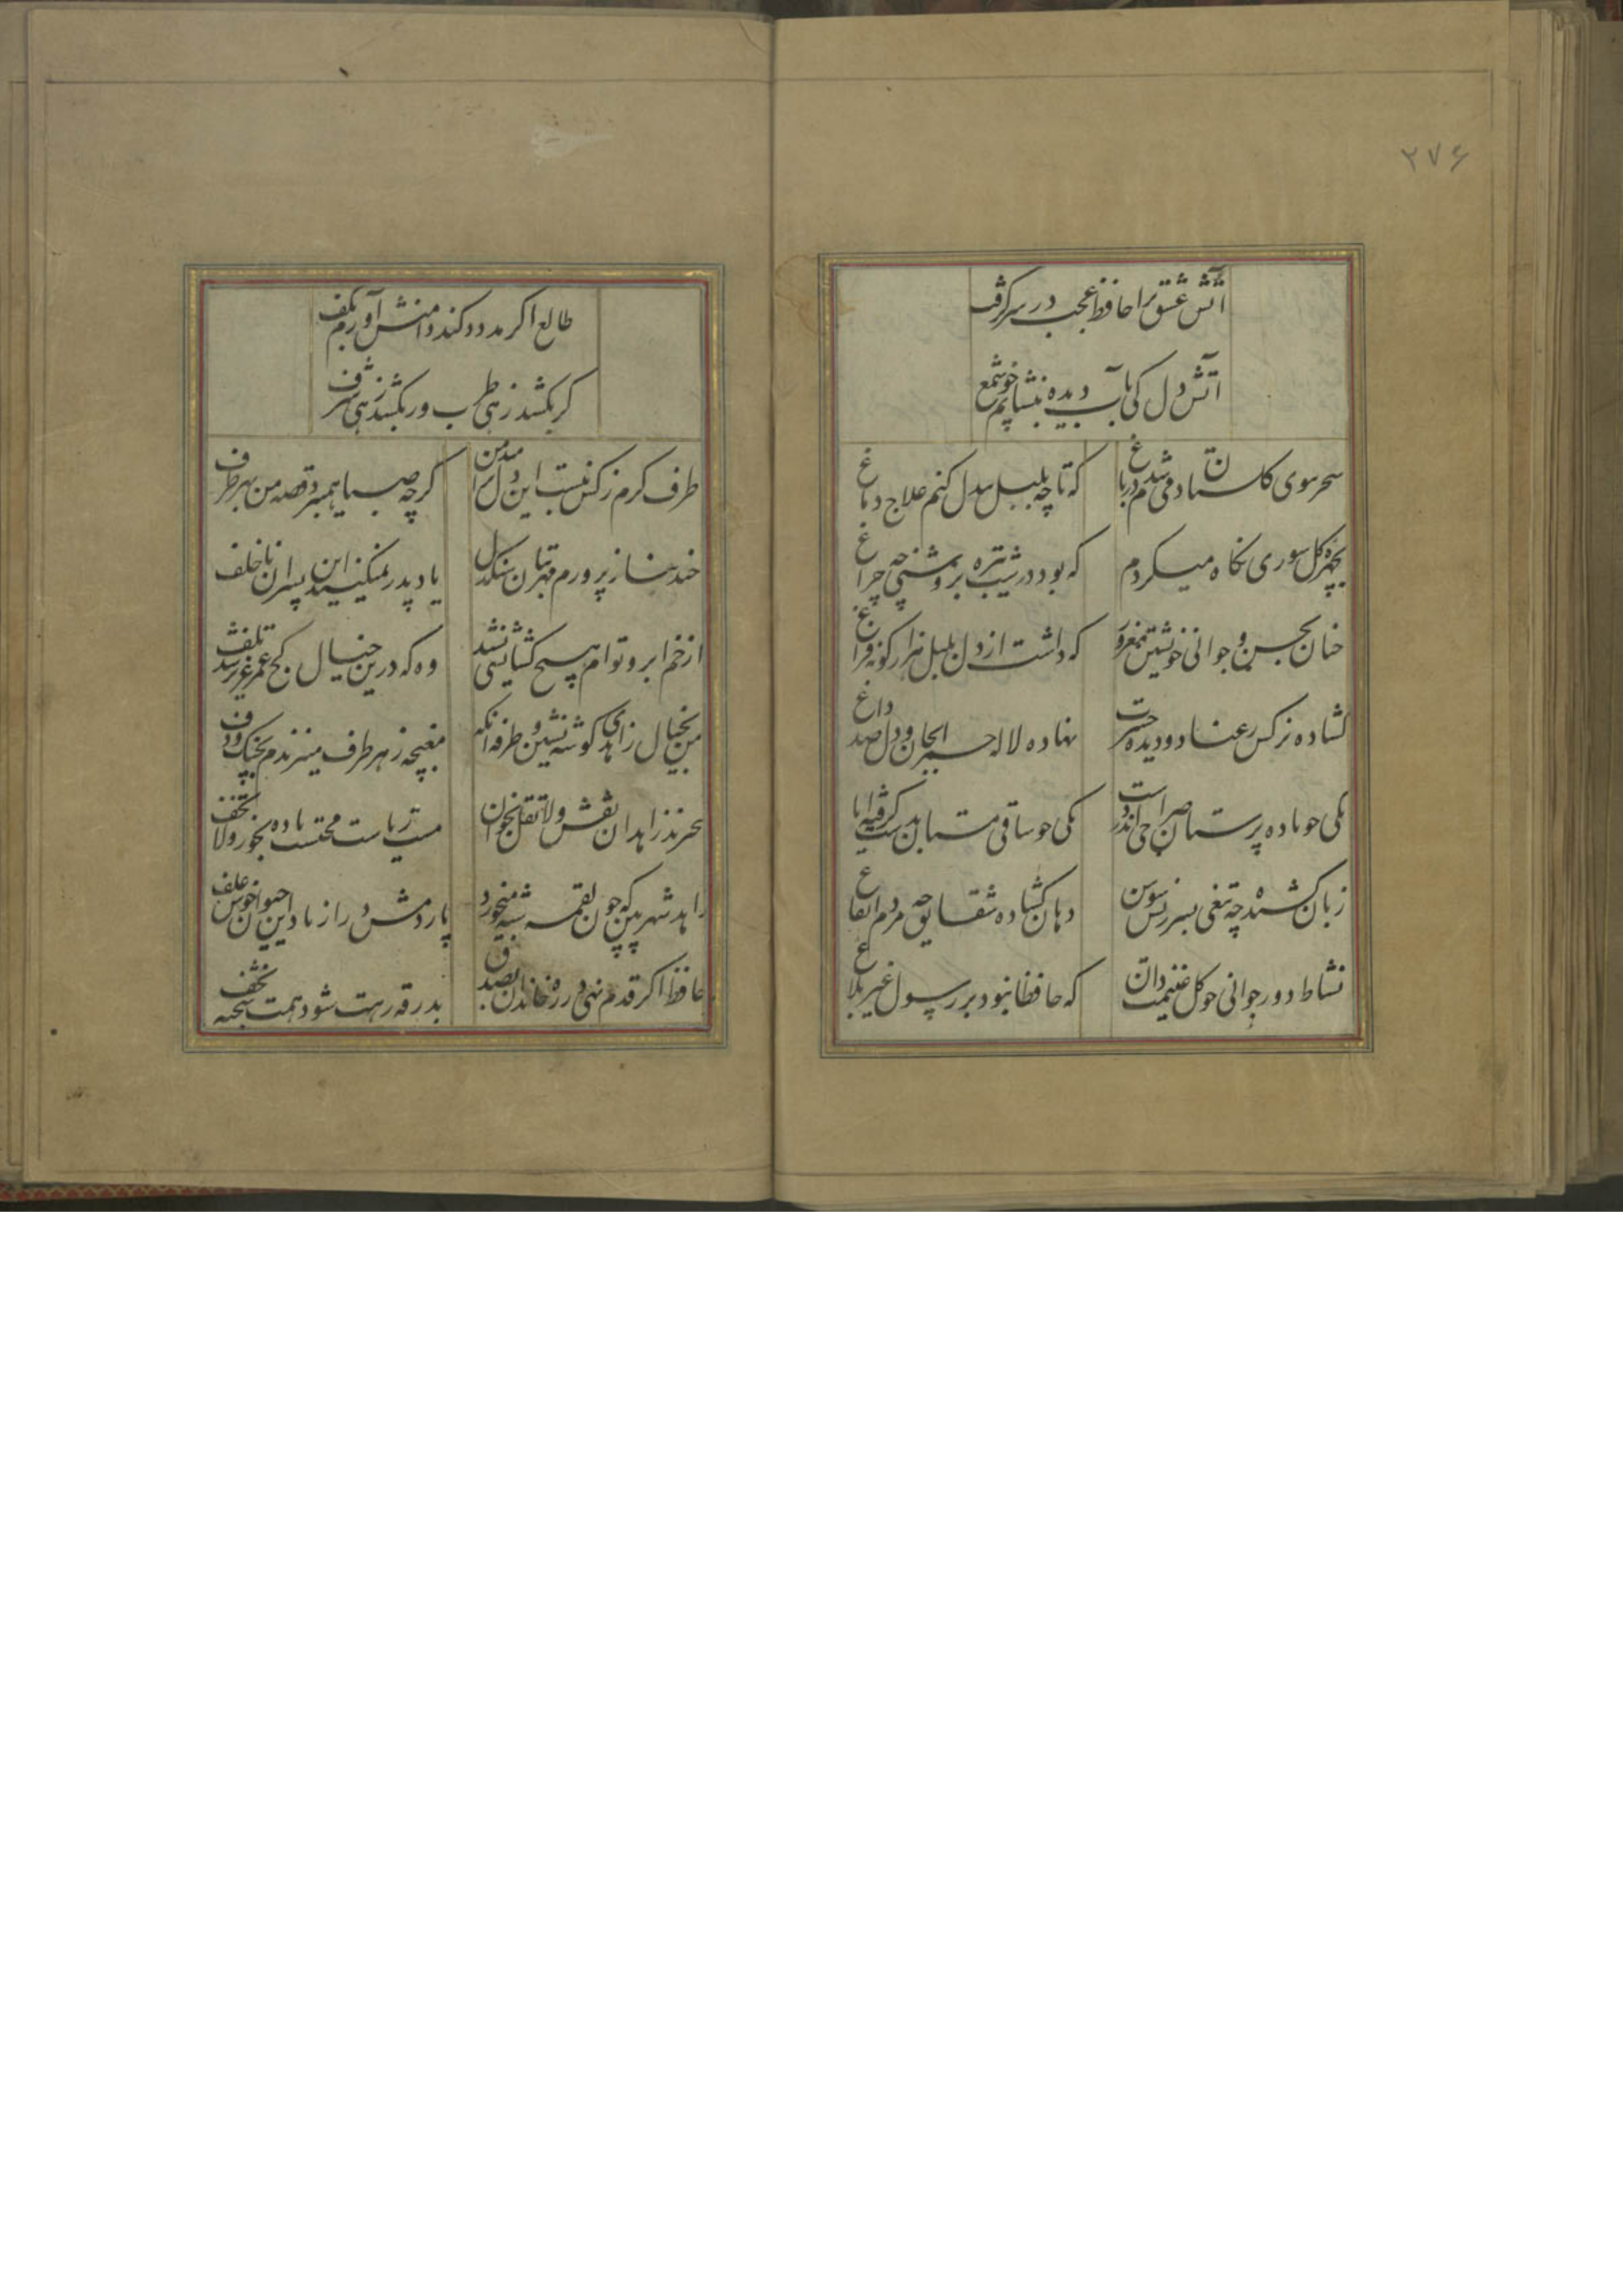 ۲۷۶
آتش عشق ترا حافظ عجب در سر گرفت
آتش دل کی بآب دیده بنشانم چو شمع
سحر ببوی گلستان دمی شدم در باغ که تا چو بلبل بیدل کنم علاج دماغ
بچهره گل سوری نگاه میکردم که بود در شب تیره بروشنی چو چراغ
چنان بحسن و جوانی خویشتن مغرور که داشت از دل بلبل هزار گونه فراغ
گشاده نرگس رعنا دو دیده حسرت نهاده لاله حمرا بجان و دل صد داغ
یکی چو باده پرستان صراحی اندر دست یکی چو ساقی مستان بدست گرفته ایاغ
زبان کشیده چو تیغی بسرزنش سوسن دهان گشاده شقایق چو مردم ایغاغ
نشاط دور جوانی چو گل غنیمت دان که حافظا نبود بر رسول غیر بلاغ
طالع اگر مدد کند دامنش آورم بکف
گر بکشد زهی طرب ور بکشد زهی شرف
طرف کرم ز کس نبست این دل من گرچه صبا همی برد قصه من بهر طرف
چند بناز پرورم مهر بتان سنگدل یاد پدر نمیکنند این پسران ناخلف
از خم ابروی توام هیچ گشایشی نشد وه که درین خیال کج عمر عزیز شد تلف
من بخیال زاهدی گوشه نشین و طرفه آنکه مغبچه ز هر طرف میزندم بچنگ و دف
بی‌خبرند زاهدان نقش بخوان و لا تقل مست ریاست محتسب باده بخور و لا تخف
زاهد شهر بین که چون لقمه شبهه میخورد پاردمش دراز باد این حیوان خوش علف
حافظ اگر قدم نهی در ره خاندان بصدق بدرقه رهت شود همت شحنه نجف